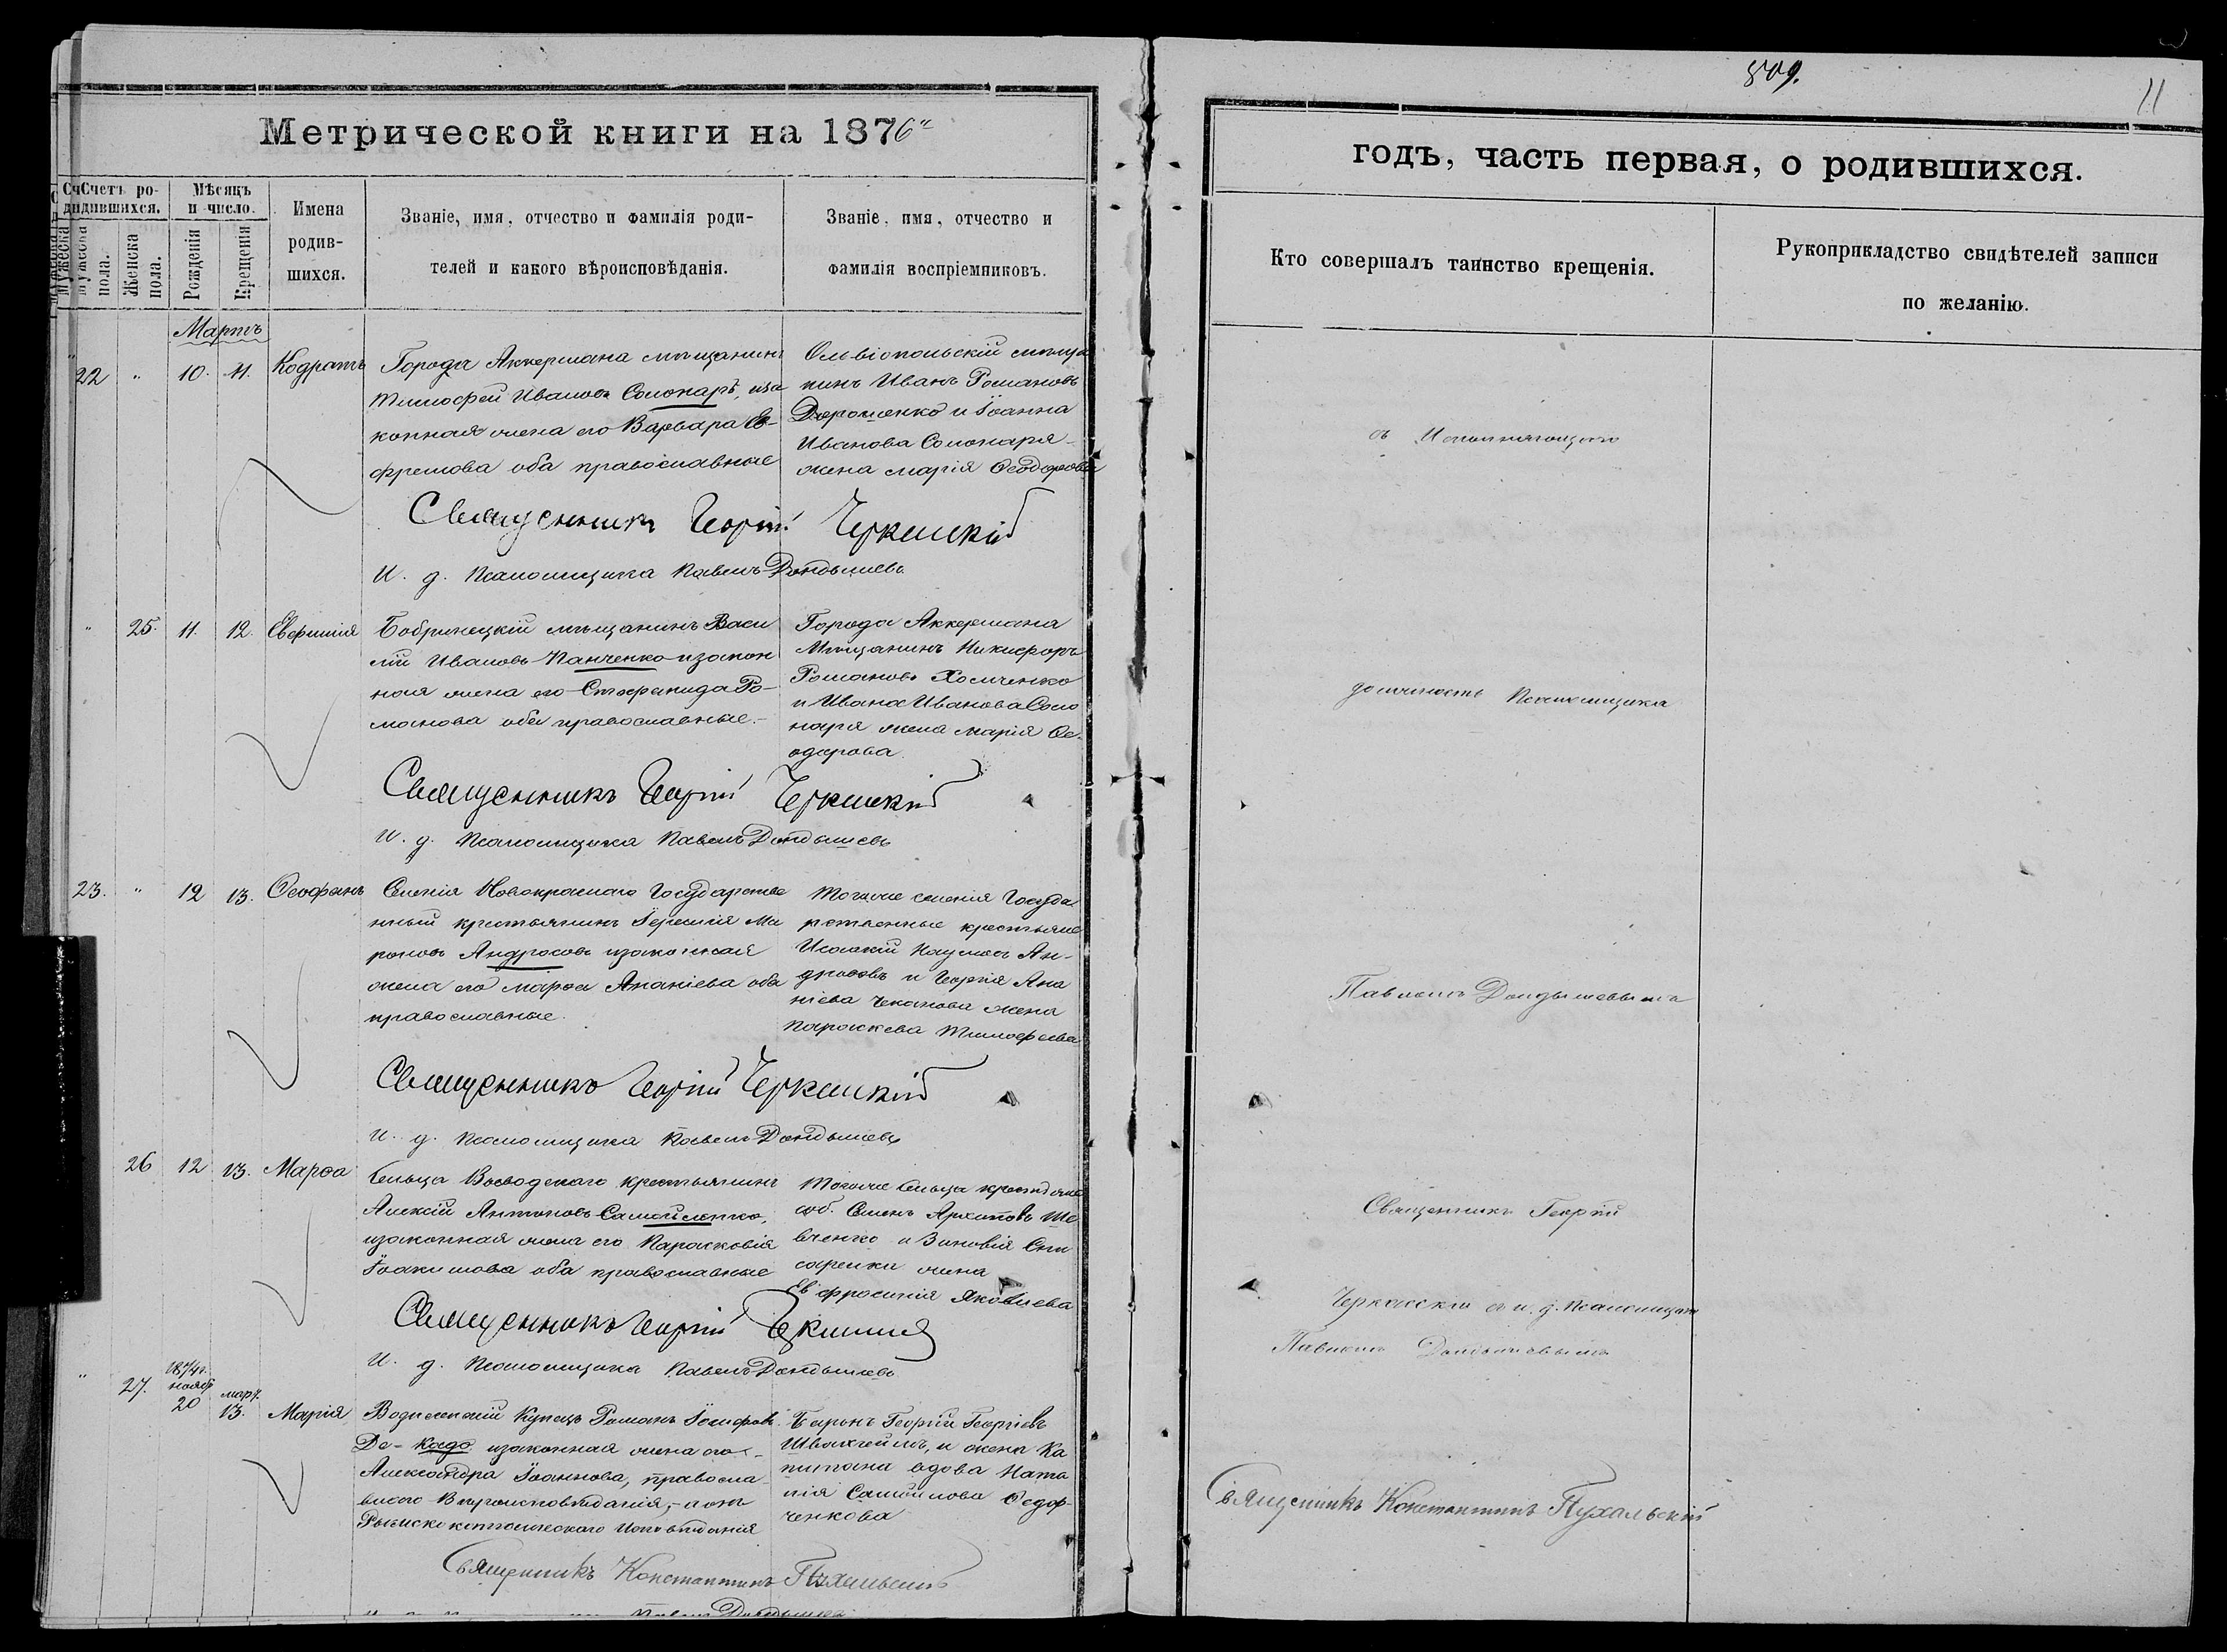 509.
11
Метрической книги на 1876й
годъ, часть первая, о родившихся.
Счетъ родившихся.
Мужеска пола.
Женска пола.
Мѣсяцъ и число.
Рожденія
Крещенія
Имена родившихся.
Званіе, имя, отчество и фамилія роди-
телей и какого вѣроисповѣданія.
Званіе, имя, отчество и
фамилія воспріемниковъ.
Кто совершалъ таинство крещенія.
Рукоприкладство свидѣтелей записи
по желанію.
Мартъ
22 " 10. 11. Кодратъ
Города Аккермана мѣщанинъ
Тимофей Ивановъ Солонарь, иза
конная жена его Варвара Е-
фремова оба православные
Ольвіопольскій мѣща
нинъ Иванъ Романовъ
Дорошенко и Іоанна
Иванова Солонаря
жена Марія Ѳеодорова
Священникъ Георгій Черкасскій
И. д. Псаломщика Павелъ Дондышевъ
съ Исполняющимъ
" 25. 11. 12. Евфимія
Бобринецкій мѣщанинъ Васи
лій Ивановъ Панченко изакон
ная жена его Стефанида Ро-
манова оба православные.-
Города Аккермана
Мѣщанинъ Никифоръ
Романовъ Хомченко
и Ивана Иванова Соло
наря жена Марія Ѳе-
одорова
Священникъ Георгій Черкасскій
И. д. Псаломщика Павелъ Дондышевъ
должность Псаломщика
23. " 12 13. Ѳеофанъ
Селенія Новокраснаго Государстве
нный крестьянинъ Іеремія Ма
роновъ Андросовъ изаконная
жена его Марѳа Ананіева оба
православные.
Тогоже селенія Госуда
рственные крестьяне
Исаакій Наумовъ Ан-
дросовъ и Георгія Ана
ніева Чеканова жена
Параскева Тимофеева
Священникъ Георгій Черкасскій
И. д. Псаломщика Павелъ Дондышевъ
Павломъ Дондышевымъ
26 12 13. Марѳа
Сельца Воеводскаго крестьянинъ
Алексій Антоновъ Самойленко,
изаконная жена его Парасковія
Іоакимова оба православные
Тогоже Сельца крестьяне
соб. Семенъ Архиповъ Ше
вченко и Зиновія Сли
саренки жена
Евфросинія Яковлева
Священникъ Георгій Черкасскій
И. д. Псаломщика Павелъ Дондышевъ
Священникъ Георгій
Черкасскій съ и. д. Псаломщика
Павломъ Дондышевымъ
" 27. 1874г. ноябр 20 март. 13. Марія
Вознесенскій Купецъ Романъ Іосифовъ
Де-Кадо изаконная жена его
Александра Іоаннова, правосла
внаго Вѣроисповѣданія, а онъ
Римско католическаго Исповѣданія
Баронъ Георгій Георгіевъ
Швахгеймъ, и жена Ка
питана вдова Ната
лія Самойлова Ѳедор-
ченкова
Священникъ Константинъ Пухальскій
Священникъ Константинъ Пухальскій
Павелъ Дондышевъ